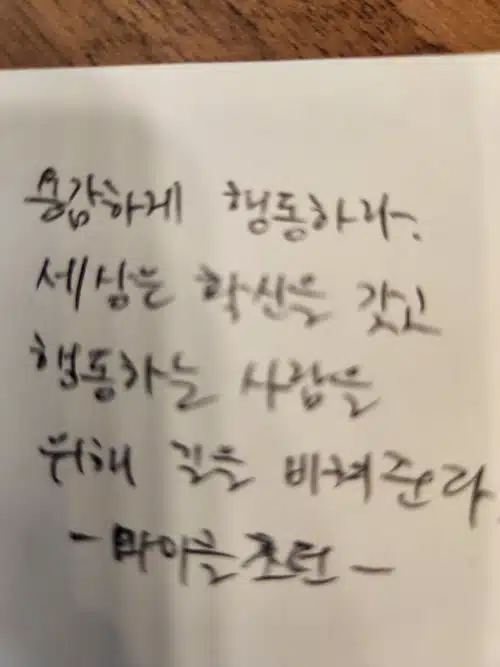 용감하게 행동하라.
세상은 확신을 갖고
행동하는 사람을
위해 길을 비켜준다.
-마이클 조던-